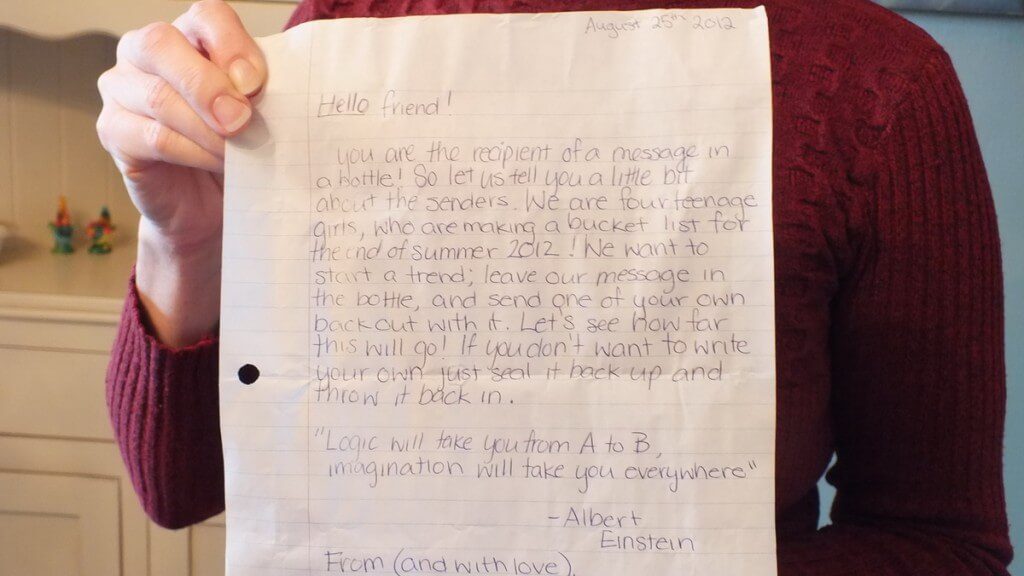 August 25th 2012
Hello friend!
you are the recipient of a message in
a bottle! So let us tell you a little bit
about the senders. We are four teenage
girls, who are making a bucket list for
the end of summer 2012! We want to
start a trend; leave our message in
the bottle, and send one of your own
back out with it. Let's see how far
this will go! If you don't want to write
your own just seal it back up and
throw it back in.
"Logic will take you from A to B,
imagination will take you everywhere"
-Albert
Einstein
From (and with love),